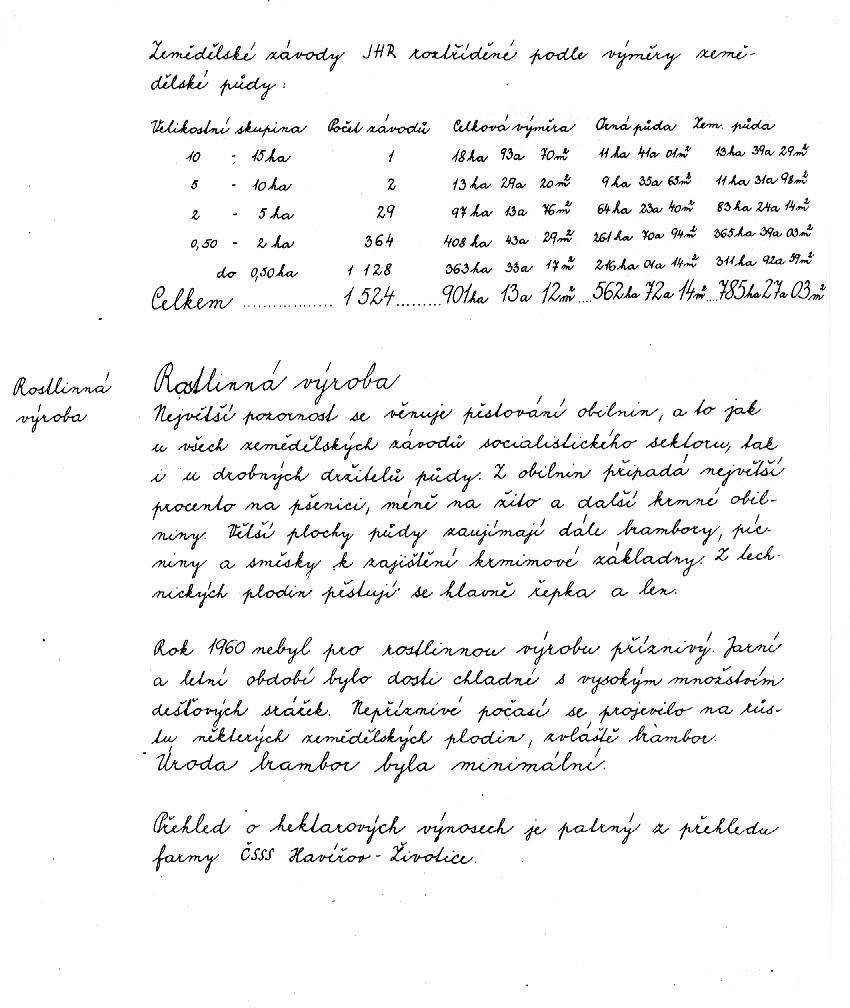 Zemědělské závody JHR roztříděné podle výměry země-
dělské půdy :
Velikostní skupina Počet závodů Celková výměra Orná půda Zem. půda
10 - 15 ha 1 18 ha 93a 70m² 11 ha 41a 01m² 13ha 39a 29m²
5 - 10 ha 2 13 ha 29a 20m² 9 ha 35a 65m² 11 ha 31a 98m²
2 - 5 ha 29 97 ha 13a 76m² 64 ha 23a 40m² 83 ha 24a 14m²
0,50 - 2 ha 364 408 ha 43a 29m² 261 ha 70a 94m² 365 ha 39a 03m²
do 0,50 ha 1 128 363 ha 33a 17m² 216 ha 01a 14m² 311 ha 92a 59m²
Celkem .................. 1 524......... 901ha 13a 12m² ... 562ha 72a 14m² ... 785ha 27a 03m²
Rostlinná
výroba
Rostlinná výroba
Největší pozornost se věnuje pěstování obilnin, a to jak
u všech zemědělských závodů socialistického sektoru, tak
i u drobných držitelů půdy. Z obilnin připadá největší
procento na pšenici, méně na žito a další krmné obil-
niny. Větší plochy půdy zaujímají dále brambory, píc-
niny a směsky k zajištění krmimové základny. Z tech-
nických plodin pěstují se hlavně řepka a len.
Rok 1960 nebyl pro rostlinnou výrobu příznivý. Jarní
a letní období bylo dosti chladné s vysokým množstvím
dešťových srážek. Nepříznivé počasí se projevilo na růs-
tu některých zemědělských plodin, zvláště brambor.
Úroda brambor byla minimální.
Přehled o hektarových výnosech je patrný z přehledu
farmy ČSSS Havířov - Životice.